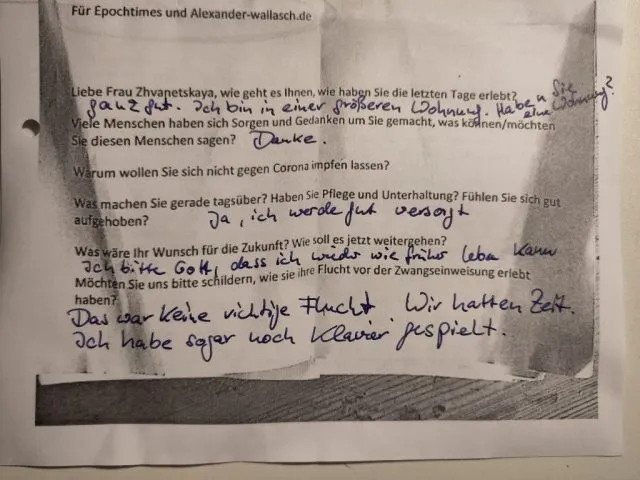 Für Epochtimes und Alexander-wallasch.de
Liebe Frau Zhvanetskaya, wie geht es Ihnen, wie haben Sie die letzten Tage erlebt?
ganz gut. Ich bin in einer größeren Wohnung. Haben Sie eine Wohnung?
Viele Menschen haben sich Sorgen und Gedanken um Sie gemacht, was können/möchten
Sie diesen Menschen sagen? Danke.
Warum wollen Sie sich nicht gegen Corona impfen lassen?
Was machen Sie gerade tagsüber? Haben Sie Pflege und Unterhaltung? Fühlen Sie sich gut
aufgehoben? Ja, ich werde gut versorgt
Was wäre Ihr Wunsch für die Zukunft? Wie soll es jetzt weitergehen?
Ich bitte Gott, dass ich wieder wie früher leben kann
Möchten Sie uns bitte schildern, wie sie ihre Flucht vor der Zwangseinweisung erlebt
haben?
Das war keine richtige Flucht. Wir hatten Zeit.
Ich habe sogar noch Klavier gespielt.